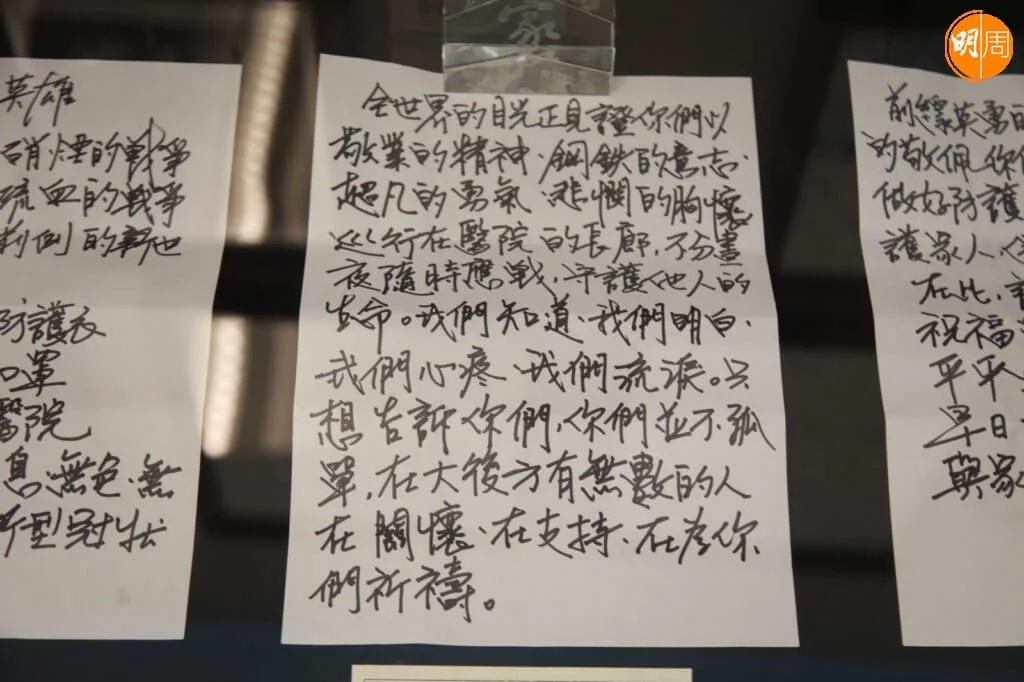 英雄
硝煙的戰爭
流血的戰爭
防護衣
口罩
醫院
息、無色、無
新型冠狀
家
全世界的目光正見證你們以
敬業的精神、鋼鐵的意志、
超凡的勇氣、悲憫的胸懷
巡行在醫院的長廊,不分晝
夜隨時應戰,守護他人的
生命。我們知道、我們明白、
我們心疼、我們流淚。只
想告訴你們,你們並不孤
單,在大後方有無數的人
在關懷、在支持、在為你
們祈禱。
前線英勇的
的敬佩,你們
做好防護
護家人、
在此,
祝福
平平
早日
與家
明周